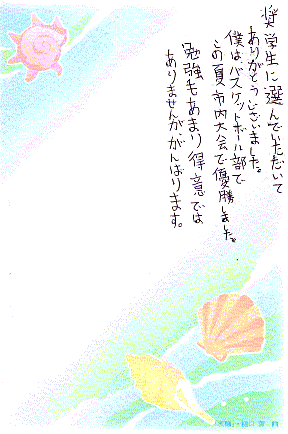 奨学生に選んでいただいて
ありがとうございました。
僕は、バスケットボール部で
この夏市内大会で優勝しました。
勉強もあまり得意では
ありませんが、がんばります。